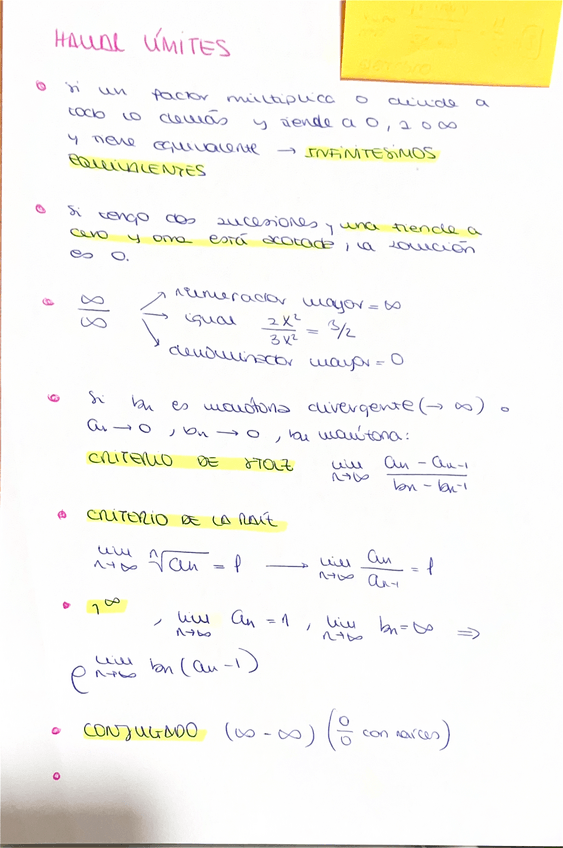 HALLAR LÍMITES
Si un factor multiplica o divide a
todo lo demás y tiende a 0, 1 o ∞
y tiene equivalente → INFINITESIMOS
EQUIVALENTES
Si tengo dos sucesiones y una tiende a
cero y otra está acotada, la solución
es 0.
∞/∞ → numerador mayor = ∞
→ igual 2x²/3x² = 3/2
→ denominador mayor = 0
Si bn es monótona divergente (→ ∞) o
an → 0, bn → 0, bn monótona:
CRITERIO DE STOLZ lim n→∞ (an - an-1)/(bn - bn-1)
CRITERIO DE LA RAÍZ
lim n→∞ ⁿ√an = l → lim n→∞ an/an-1 = l
1^∞, lim n→∞ an = 1, lim n→∞ bn = ∞ ⇒
e^lim n→∞ bn (an - 1)
CONJUGADO (∞ - ∞) (0/0 con raíces)